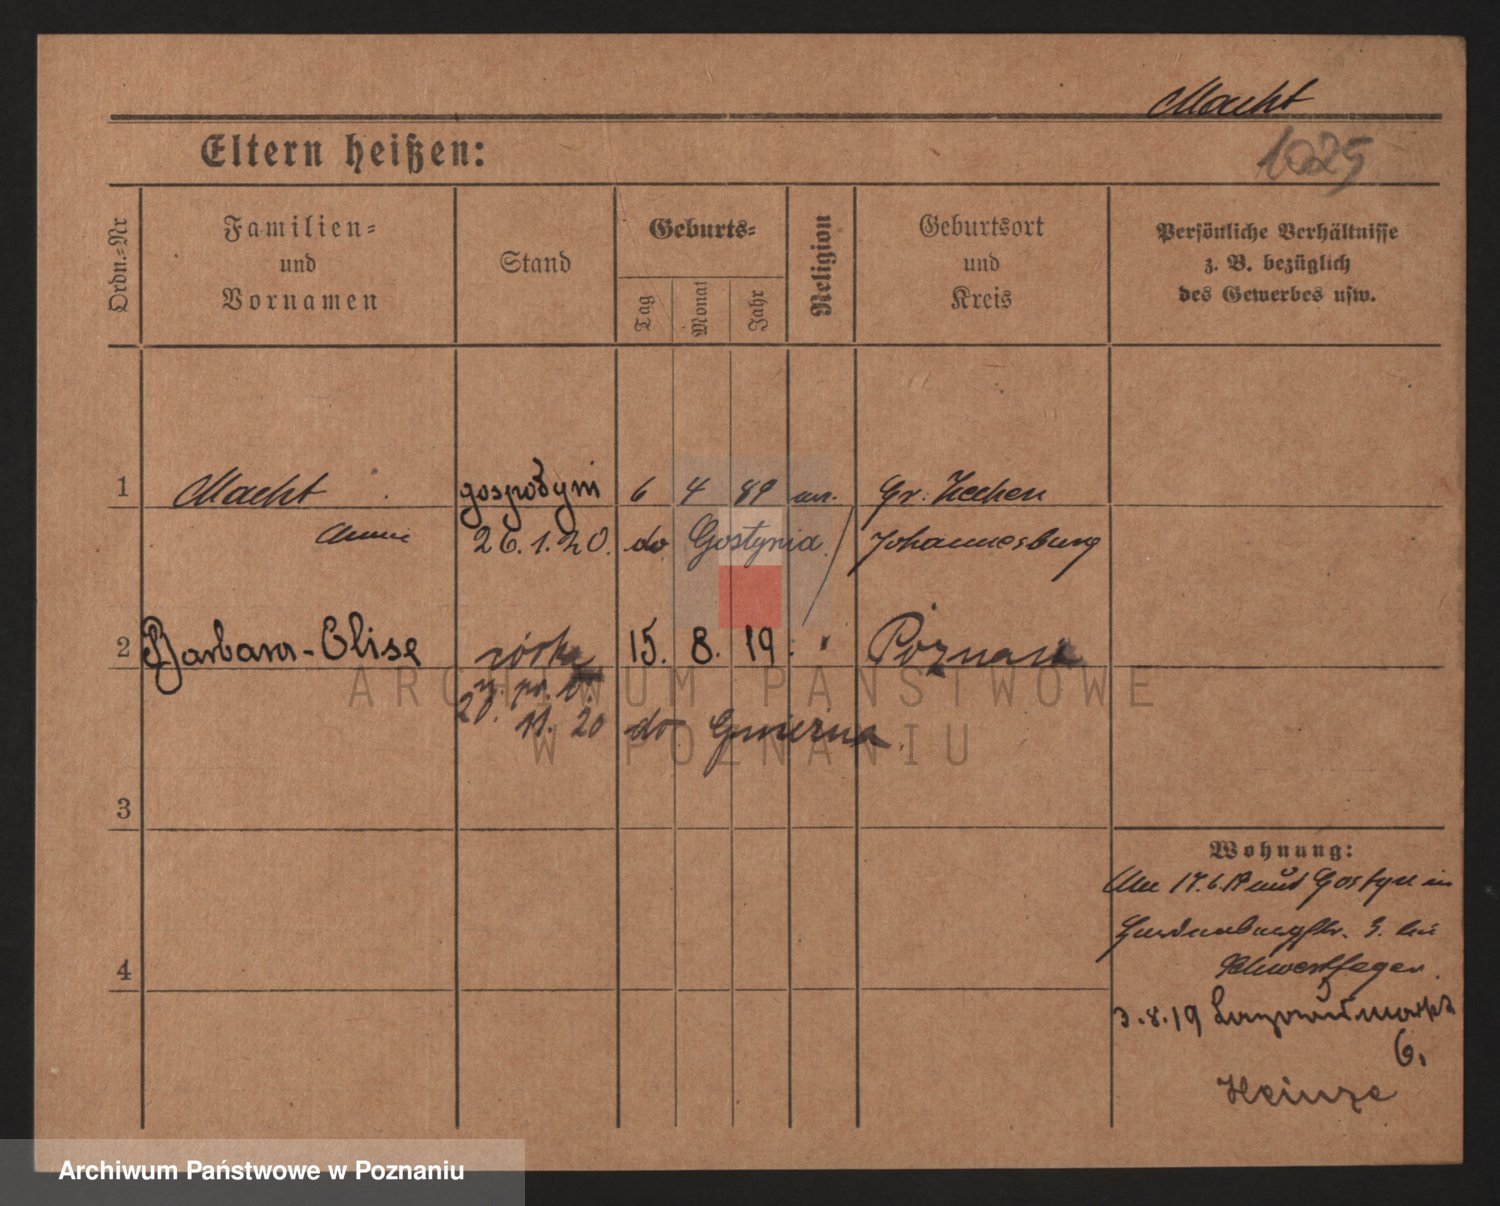 Macht
1025
Eltern heißen:
Ordn.=Nr
Familien=
und
Vornamen
Stand
Geburts=
Tag
Monat
Jahr
Religion
Geburtsort
und
Kreis
Persönliche Verhältnisse
z. B. bezüglich
des Gewerbes usw.
1 Macht gospodyni 6 4 89 Gr. Zechen
26.1.20. do Gostynia. Johannesburg
2 Barbara-Elise córka 15. 8. 19. Poznań
20. 11. 20 do
3
4
Wohnung:
17.6.19 aus Gostyn in
3. bei
Schwertfeger.
3.8.19
6.
Heinze
ARCHIWUM PAŃSTWOWE
W POZNANIU
Archiwum Państwowe w Poznaniu